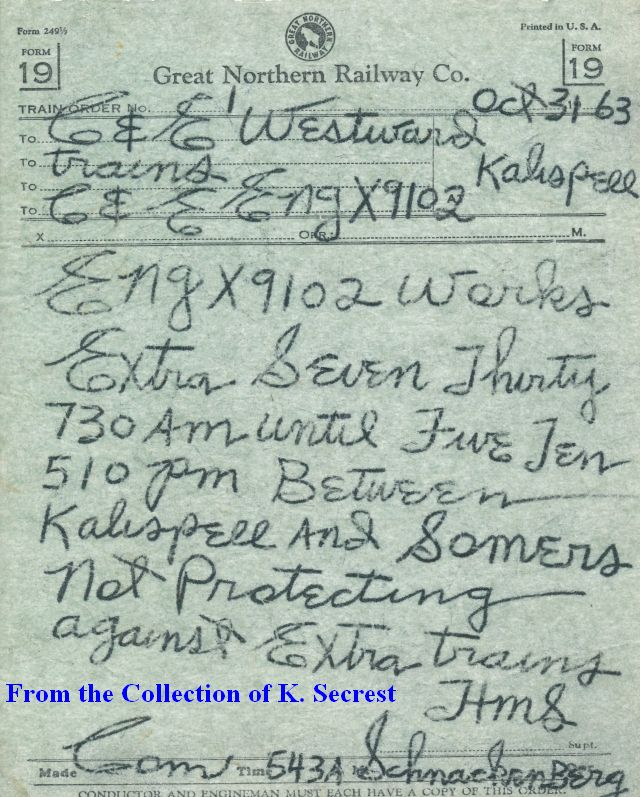 Form 249½
Printed in U. S. A.
GREAT NORTHERN RAILWAY
FORM 19
FORM 19
Great Northern Railway Co.
Oct 31 63
TRAIN ORDER No. 1
To C & E Westward
Kalispell
To trains
To
To C & E Eng X9102
X OPR.; M.
Eng X9102 Works
Extra Seven Thirty
730 Am until Five Ten
510 pm Between
Kalispell And Somers
Not Protecting
against Extra trains
From the Collection of K. Secrest
HMS
Supt.
Made Com Time 543A Schnackenberg
CONDUCTOR AND ENGINEMAN MUST EACH HAVE A COPY OF THIS ORDER.